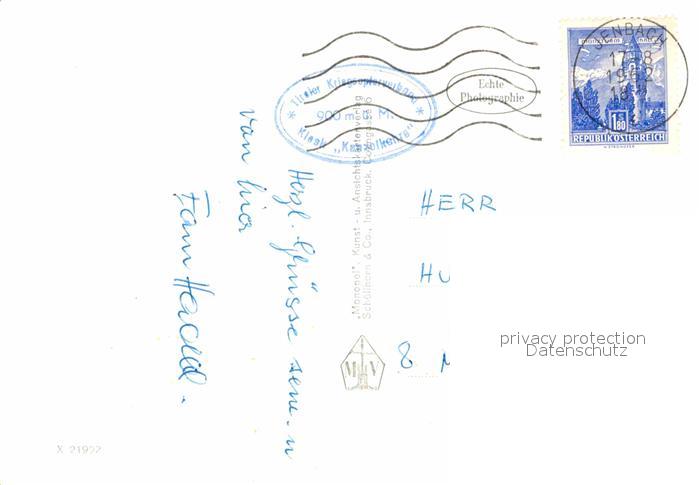 JENBACH
17.8
1962
18
REPUBLIK ÖSTERREICH
1.80
Tiroler Kriegsopferverband
900 m ü. M.
Echte
Photographie
"Monopol", Kunst- u. Ansichtskartenverlag
Schöllhorn & Co., Innsbruck,
Herzl. Grüsse sen. u
von hier
Fam
HERR
HU
8 M
M V
privacy protection
Datenschutz
X 21992